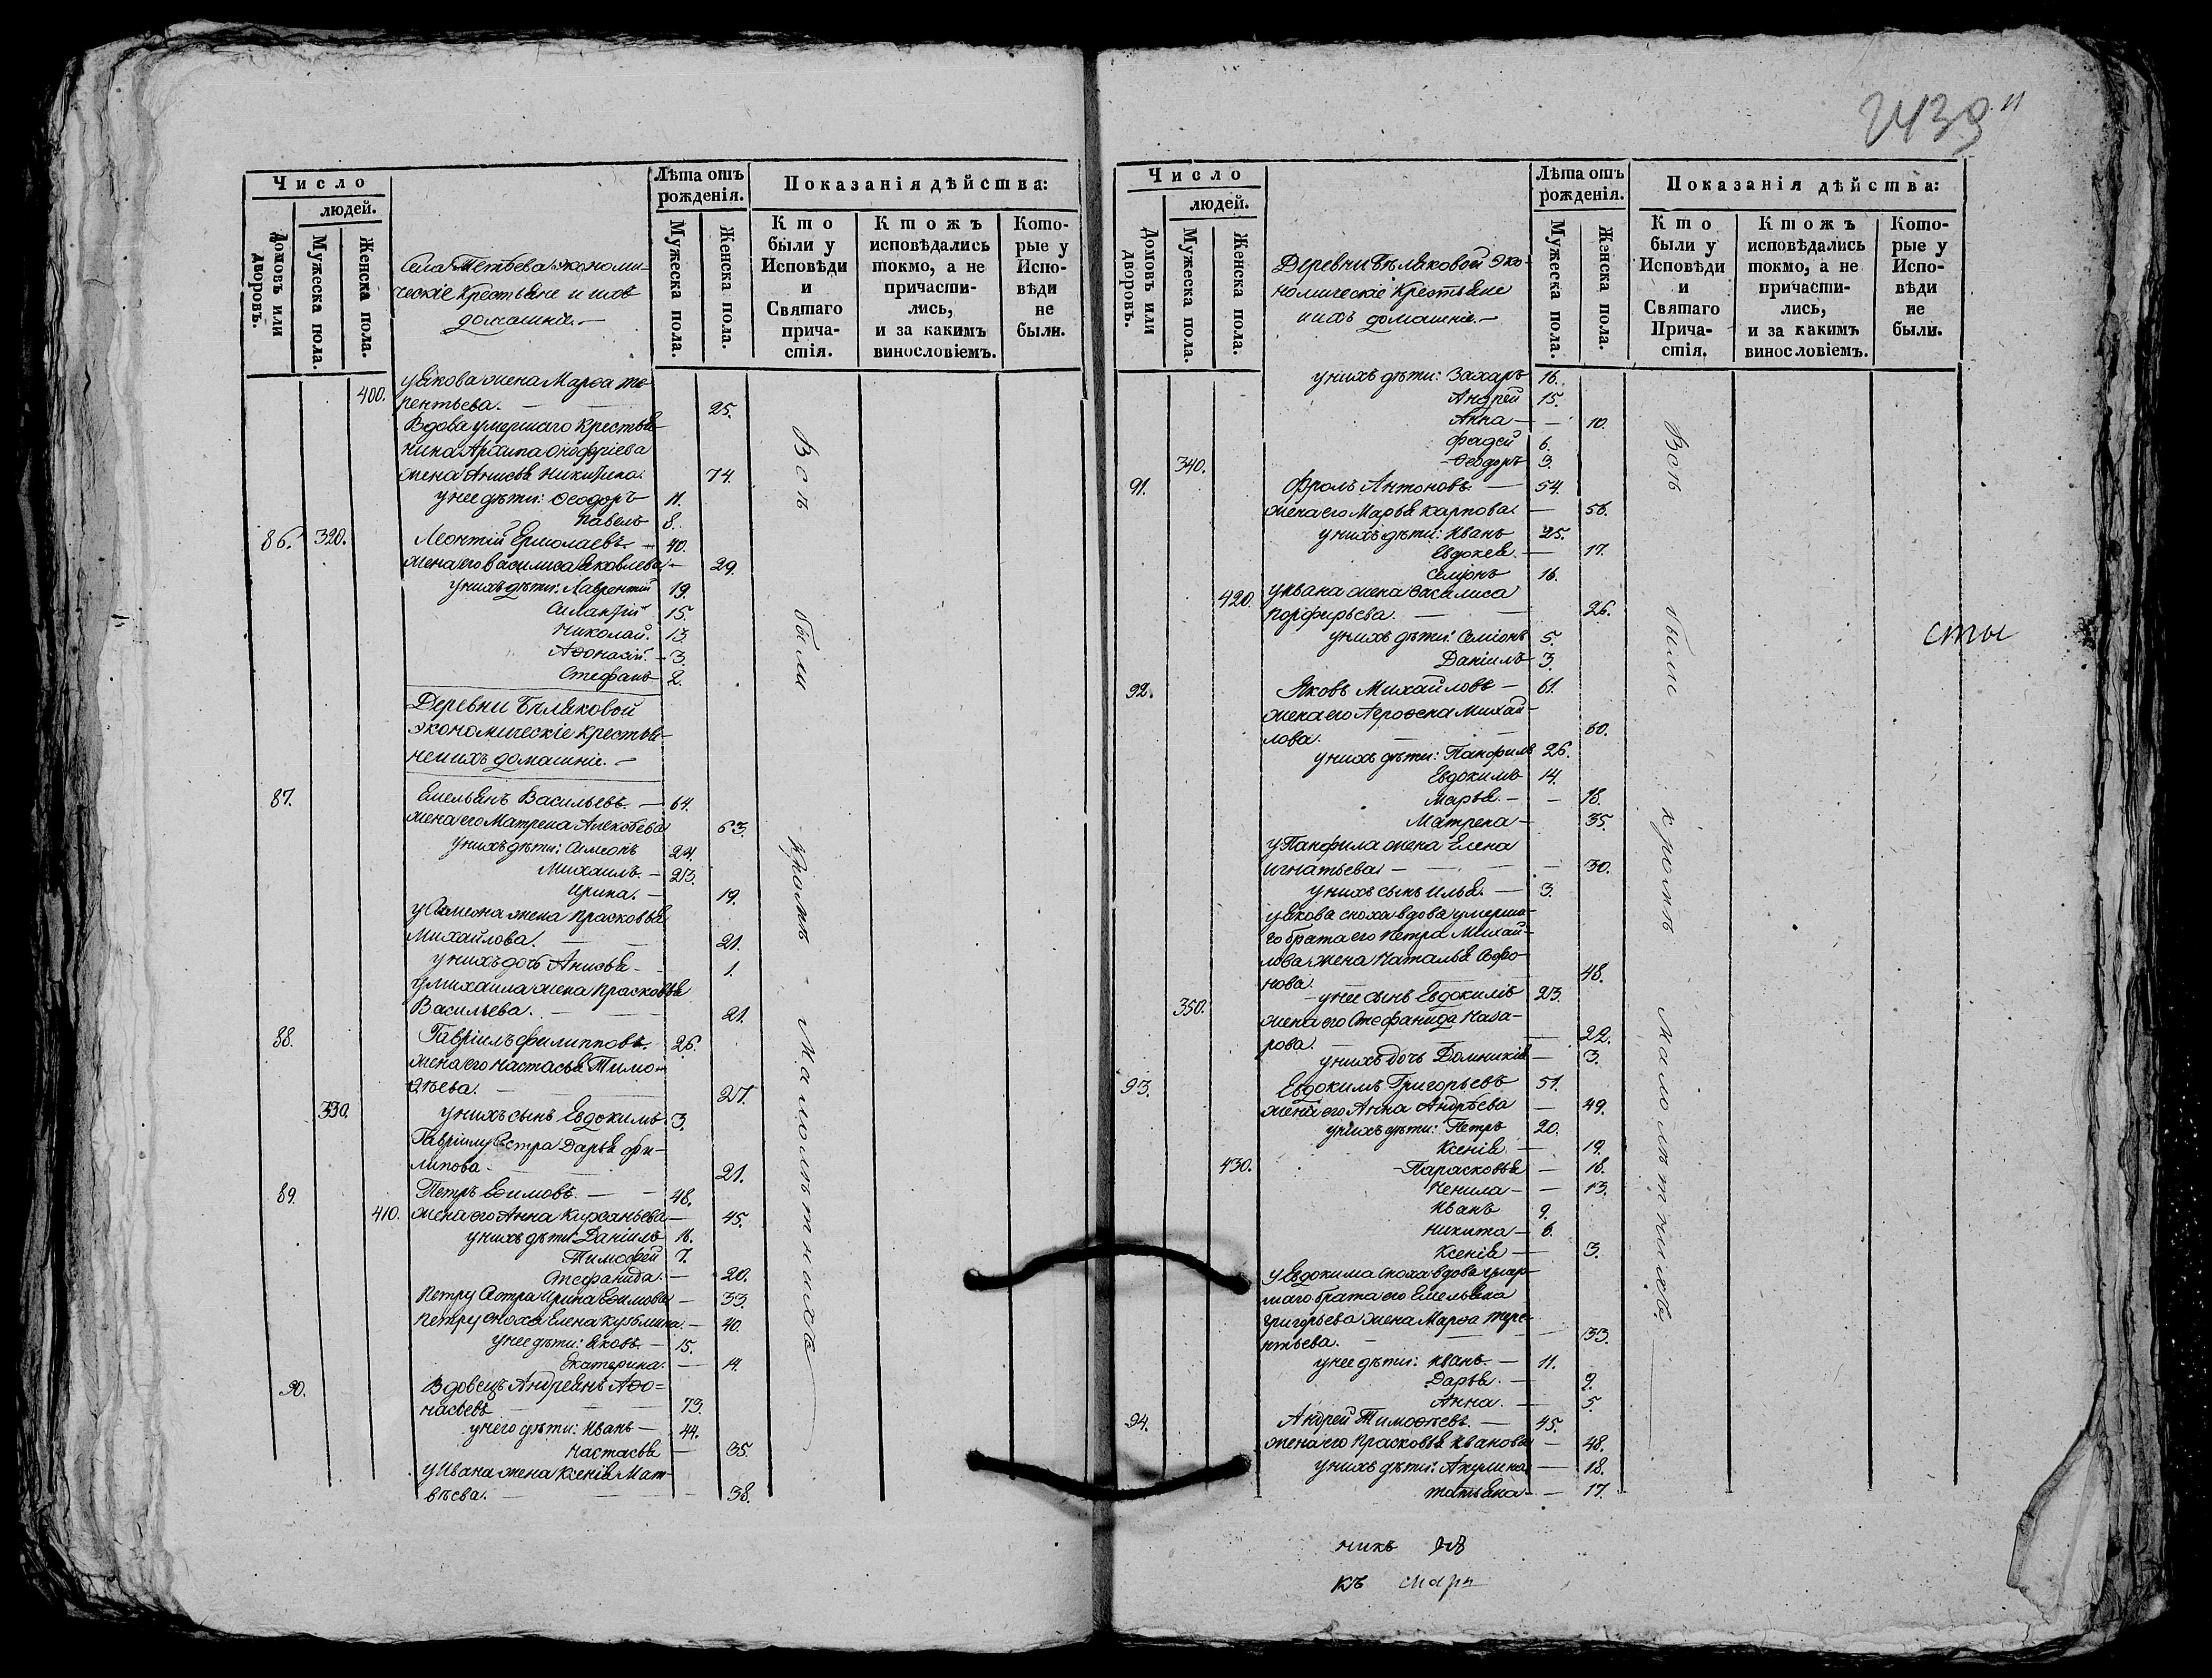 2439
11
Число
людей.
Домовъ или дворовъ.
Мужеска пола.
Женска пола.
Села Тетѣева экономи-
ческіе Крестьяне и ихъ
домашніе. —
Лѣта отъ
рожденія.
Мужеска пола.
Женска пола.
Показанія дѣйства:
Кто были у Исповѣди и Святаго причастія.
Ктожъ исповѣдались токмо, а не причастились, и за какимъ винословіемъ.
Которые у Исповѣди не были.
400. у Якова жена Марѳа те-
рентьева. — 25.
Вдова умершаго крестья-
нина Архипа Онофріева
жена Анисья Никитина. 74.
у нее дѣти: Ѳеодоръ 11.
Павелъ 8.
86. 320. Леонтій Ермолаевъ. — 40.
жена его Василиса Яковлева — 29.
у нихъ дѣти: Лаврентій 19.
15.
Николай. 13.
Аѳонасій. — 3.
Стефанъ 2.
Деревни Бѣляковой
экономическіе крестья-
не и ихъ домашніе. —
87. Емельянъ Васильевъ. — 64.
жена его Матрена Алексѣева 63.
у нихъ дѣти: Симеонъ 24.
Михаилъ. — 23.
Ирина. — 19.
у Симеона жена Прасковья
Михайлова. — 21.
у нихъ дочь Анисья — 1.
у Михаила жена Прасковья
Васильева. — 21.
88. Гавріилъ Филипповъ. 26.
жена его Настасья Тимо-
ѳѣева. — 27.
330. у нихъ сынъ Евдокимъ. 3.
Гавріилу сестра Дарья Фи-
липова — 21.
89. Петръ Еѳимовъ. — 48.
410. жена его Анна Кирсаньева — 45.
у нихъ дѣти: Даніилъ 16.
Тимофей 7.
Стефанида. — 20.
Петру сестра Ирина Еѳимова — 33.
Петру сноха Елена Кузьмина. — 40.
у нее дѣти: Яковъ. — 15.
Екатерина. — 14.
90. Вдовецъ Андреянъ Аѳо-
насьевъ — 73.
у него дѣти: Иванъ — 44.
Настасья — 35.
у Ивана жена Ксенія Мат-
вѣева. — 38.
Всѣ были кромѣ Малолѣтнихъ
Число
людей.
Домовъ или дворовъ.
Мужеска пола.
Женска пола.
Деревни Бѣляковой эко-
номическіе Крестьяне
и ихъ домашніе. —
Лѣта отъ
рожденія.
Мужеска пола.
Женска пола.
Показанія дѣйства:
Кто были у Исповѣди и Святаго Причастія.
Ктожъ исповѣдались токмо, а не причастились, и за какимъ винословіемъ.
Которые у Исповѣди не были.
у нихъ дѣти: Захаръ 16.
Андрей 15.
Анна — 10.
Фадей 6.
340. Ѳеодоръ 3.
91. Фролъ Антоновъ. — 54.
жена его Марья Карпова. — 56.
у нихъ дѣти: Иванъ 25.
Евдокея. — 17.
Семіонъ 16.
420. у Ивана жена Василиса
Порфирьева. — 26.
у нихъ дѣти: Семіонъ 5.
Даніилъ 3.
92. Яковъ Михайловъ — 61.
жена его Агроѳена Михай-
лова. — 60.
у нихъ дѣти: Панфилъ 26.
Евдокимъ 14.
Марья. — 18.
Матрена — 35.
у Панфила жена Елена
Игнатьева — 30.
у нихъ сынъ Илья. — 3.
у Якова сноха вдова умерша-
го брата его Петра Михай-
лова жена Наталья Софо-
нова. 48.
350. у нее сынъ Евдокимъ 23.
жена его Стефанида Наза-
рова. — 22.
у нихъ дочь Домникія — 3.
93. Евдокимъ Григорьевъ 51.
жена его Анна Андрѣева — 49.
у нихъ дѣти: Петръ 20.
Ксенія. — 19.
430. Парасковья — 16.
Ненила — 13.
Иванъ 9.
Никита — 6.
Ксенія — 3.
у Евдокима сноха вдова умер-
шаго брата его Емельяна
Григорьева жена Марѳа Тере-
нтьева. — 33.
у нее дѣти: Иванъ. — 11.
Дарья. — 9.
Анна. — 5.
94. Андрей Тимоѳѣевъ. — 45.
жена его Прасковья Иванова — 48.
у нихъ дѣти: Акулина — 18.
татьяна — 17.
Всѣ были кромѣ Малолѣтнихъ.
сты
никъ
къ